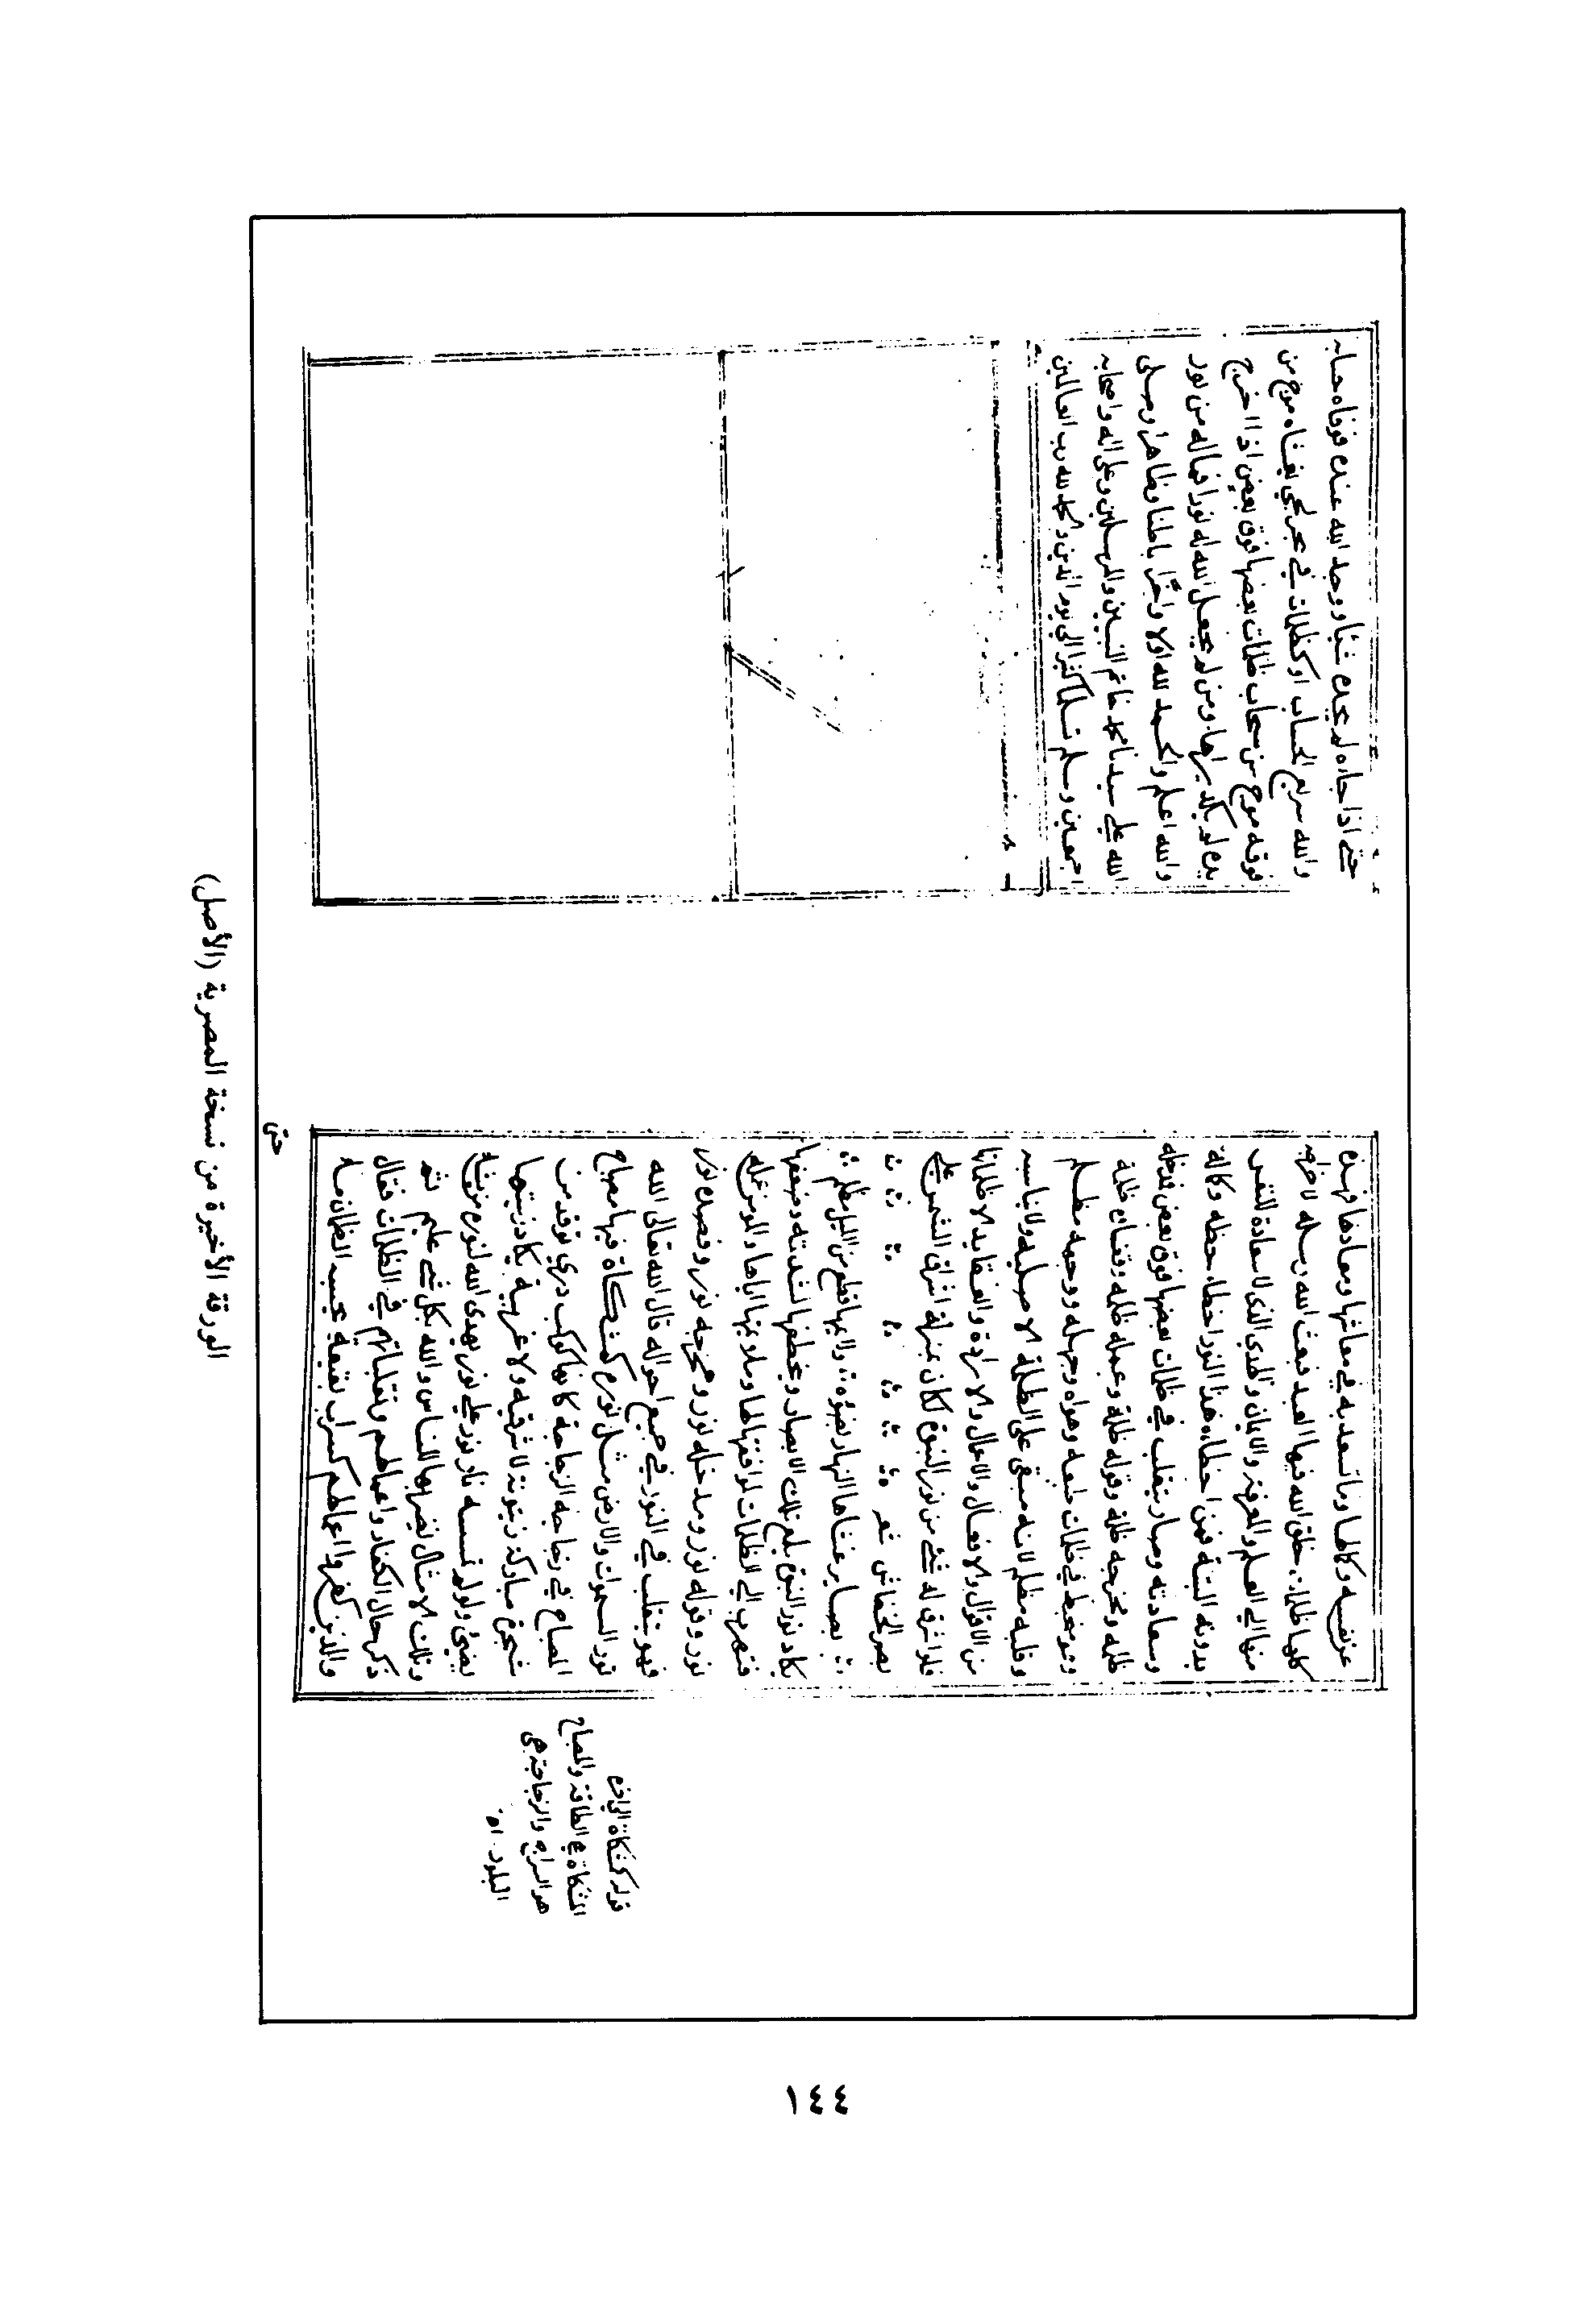 عن نفسه وكمالها وما تسعد به في معاشها ومعادها فهذه
كلها ظلمات خلق الله فيها العبد فبعث الله رسله لاخراجه
منها الى العلم والمعرفة والايمان والهدى الذي لا سعادة للنفس
بدونه البتة فمن اخطاه هذا النور اخطاه حظه وكماله
وسعادته وصار يتقلب في ظلمات بعضها فوق بعض فمدخله
ظلمه ومخرجه ظلمة وقوله ظلمة وعمله ظلمه وقصده ظلمة
وهو متخبط في ظلمات طبعه وهواه وجهله ووجهه مظلم
وقلبه مظلم لانه مبقي على الظلمة الاصليه ولا يناسبه
من الاقوال والافعال والاعمال والارادة والعقايد الا ظلماتها
فلو اشرق له شيء من نور النبوة لكان بمنزلة اشراق الشمس على
بصر الخفاش شعر
بصاير غشاها النهار بضوئه ولايمها قطع من الليل مظلم
يكاد نور النبوة يلمع تلك الابصار ويخطفها لشدته وضعفها
فتهرب الى الظلمات لموافقتها لها وملايمتها اياها والمومن عمله
نور وقوله نور ومدخله نور ومخرجه نور وقصده نور
فهو يتقلب في النور في جميع احواله قال الله تعالى الله
نور السموات والارض مثل نوره كمشكاة فيها مصباح
المصباح في زجاجة الزجاجة كانها كوكب دري توقد من
شجرة مباركة زيتونة لا شرقيه ولا غربية يكاد زيتها
يضيئ ولو لم تمسسه نار نور على نور يهدى الله لنوره من يشاء
وتلك الامثال نضربها للناس والله بكل شيء عليم ثم
ذكر حال الكفار واعمالهم وتقلباتهم في الظلمات فقال
والذين كفروا اعمالهم كسراب بقيعة يحسبه الظمان ماء
حتى
قوله كمشكاة الى اخره
المشكاة هي الطاقة والمصباح
هو السراج والزجاجة هي
البلور اه
حتى اذا جاءه لم يجده شيئا ووجد الله عنده فوفاه حسابه
والله سريع الحساب او كظلمات في بحر لجي يغشاه موج من
فوقه موج من سحاب ظلمات بعضها فوق بعض اذا اخرج
يده لم يكد يراها ومن لم يجعل الله له نورا فما له من نور
والله اعلم والحمد لله اولا واخرا باطنا وظاهرا وصلى
الله على سيدنا محمد خاتم النبيين والمرسلين وعلى اله واصحابه
اجمعين وسلم تسليما كثيرا الى يوم الدين والحمد لله رب العالمين
الورقة الأخيرة من نسخة المصرية (الأصل)
١٤٤